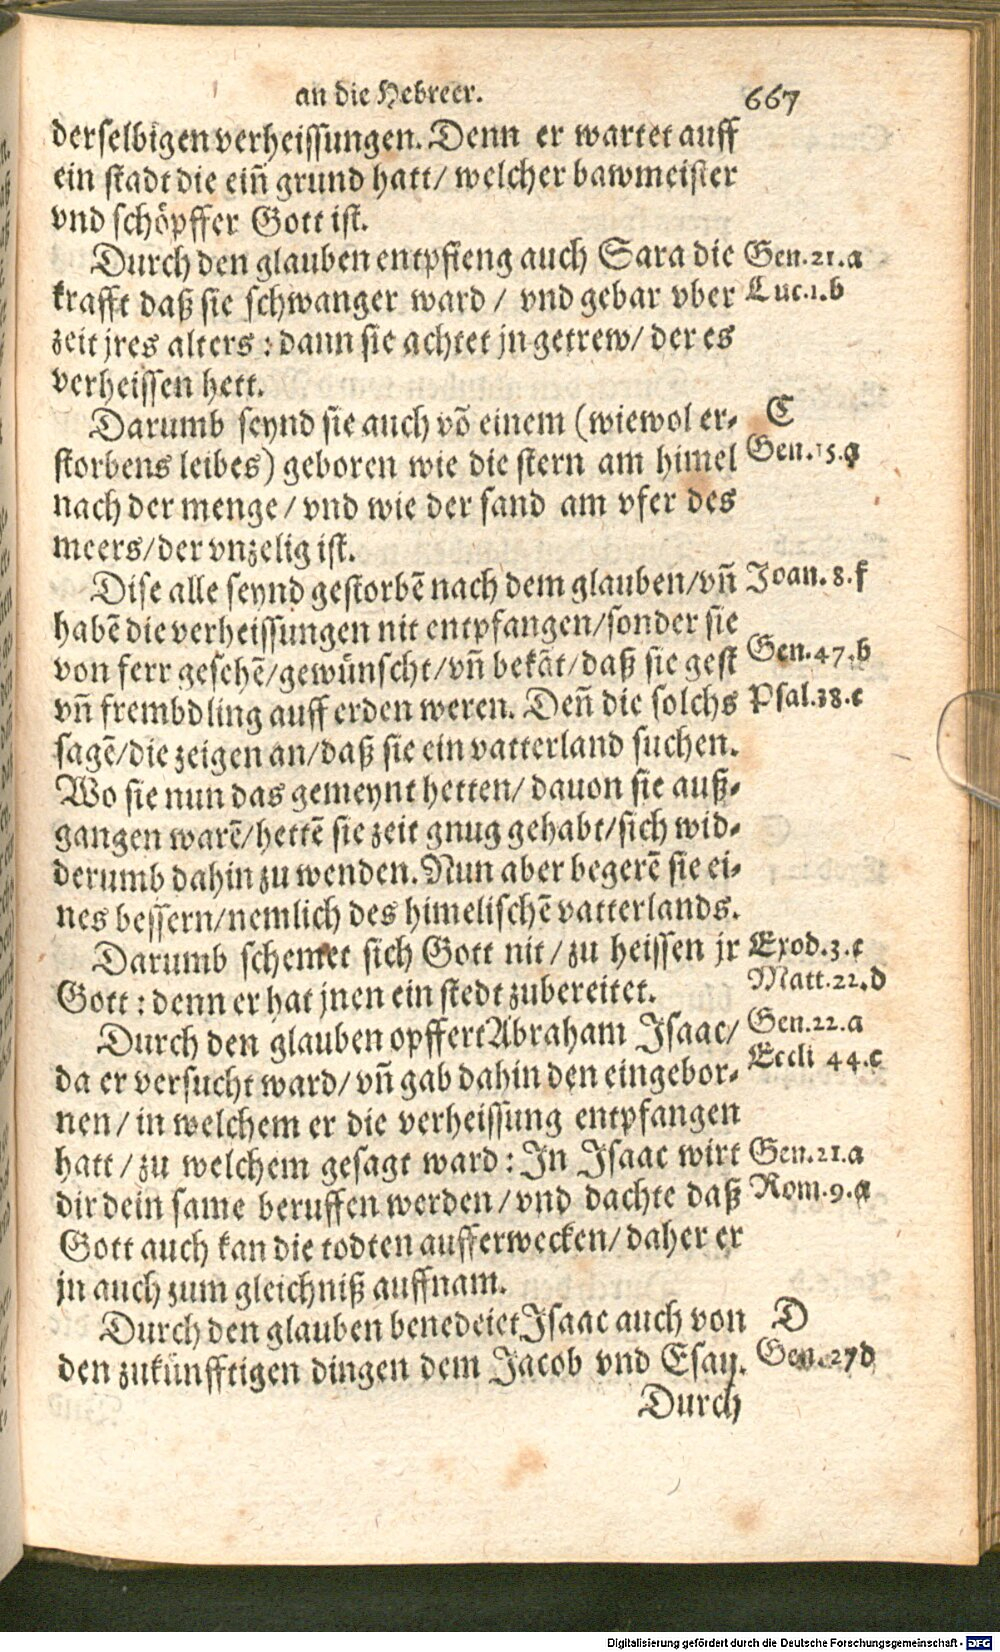 an die Hebreer. 667
derselbigen verheissungen. Denn er wartet auff
ein stadt die eiñ grund hatt/ welcher bawmeister
vnd schöpffer Gott ist.
Durch den glauben entpfieng auch Sara die Gen.21.a
krafft daß sie schwanger ward / vnd gebar vber Luc.1.b
zeit jres alters : dann sie achtet jn getrew/ der es
verheissen hett.
Darumb seynd sie auch võ einem (wiewol er- C
storbens leibes) geboren wie die stern am himel Gen.15.a
nach der menge / vnd wie der sand am vfer des
meers/der vnzelig ist.
Dise alle seynd gestorbẽ nach dem glauben/vñ Joan.8.f
habẽ die verheissungen nit entpfangen/sonder sie
von ferr gesehẽ/gewünscht/vñ bekãt/daß sie gest Gen.47.b
vñ frembdling auff erden weren. Deñ die solchs Psal.38.c
sagẽ/die zeigen an/daß sie ein vatterland suchen.
Wo sie nun das gemeynt hetten/ dauon sie auß-
gangen warẽ/hettẽ sie zeit gnug gehabt/sich wid-
derumb dahin zu wenden. Nun aber begerẽ sie ei-
nes bessern/nemlich des himelischẽ vatterlands.
Darumb schemet sich Gott nit / zu heissen jr Exod.3.c
Gott : denn er hat jnen ein stedt zubereitet. Matt.22.d
Durch den glauben opffert Abraham Isaac/ Gen.22.a
da er versucht ward/ vñ gab dahin den eingebor- Eccli 44.c
nen / in welchem er die verheissung entpfangen
hatt / zu welchem gesagt ward : In Isaac wirt Gen.21.a
dir dein same beruffen werden / vnd dachte daß Rom.9.a
Gott auch kan die todten aufferwecken/ daher er
jn auch zum gleichniß auffnam.
Durch den glauben benedeiet Isaac auch von D
den zukünfftigen dingen dem Jacob vnd Esau. Gen.27d
Durch
Digitalisierung gefördert durch die Deutsche Forschungsgemeinschaft - DFG